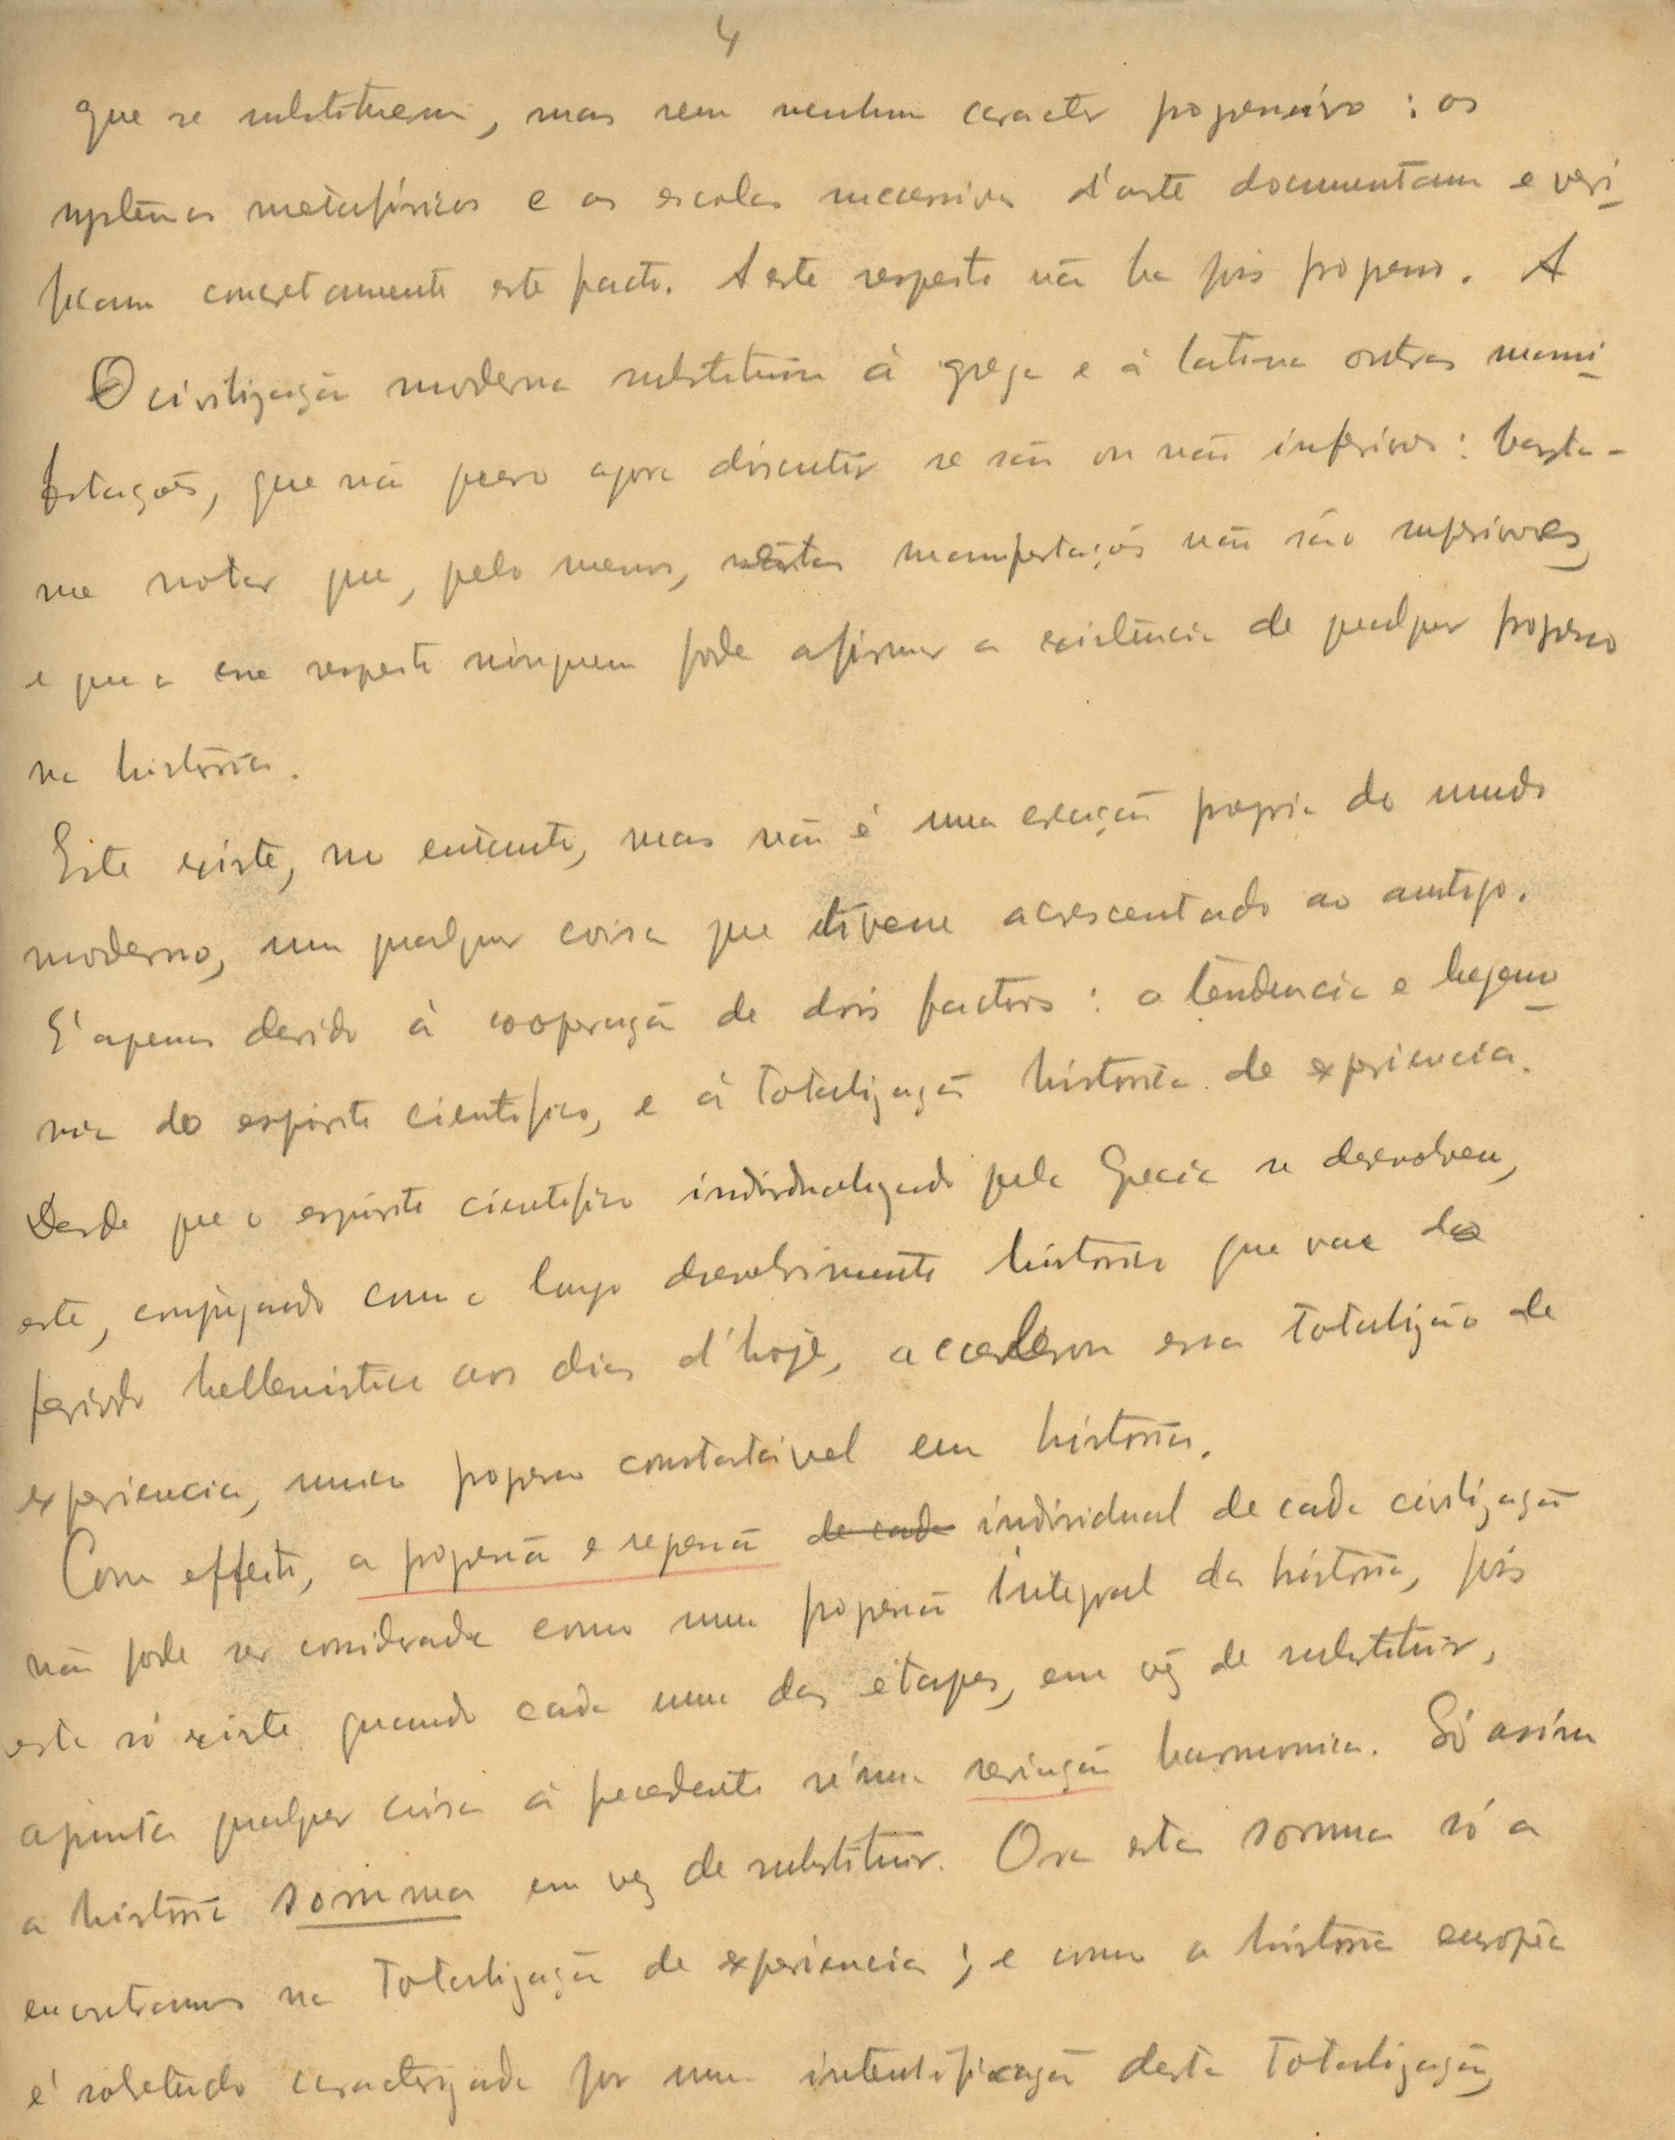 4
que se substituem, mas sem nenhum caracter progressivo : os
systemas metafísicos e as escolas successivas d'arte documentam e veri-
ficam concretamente este facto. A este respeito não ha pois progresso. A
civilização moderna substituiu à grega e à latina outras mani-
festações, que não quero agora discutir se são ou não inferiores : basta-
me notar que, pelo menos, estas manifestações não são superiores,
e que a esse respeito ninguem pode afirmar a existência de qualquer progresso
na história.
Este existe, no entanto, mas não é uma creação propria do mundo
moderno, um qualquer coisa que tivesse acrescentado ao antigo.
E' apenas devido à cooperação de dois factores : a tendencia e hegemo-
nia do espirito cientifico, e à totalização historica de experiencia.
Desde que o espirito cientifico individualizado pela Grecia se desenvolveu,
este, conjugado com o longo desenvolvimento historico que vae do
periodo hellenistico aos dias d'hoje, accelerou essa totalização de
experiencia, unico progresso constatável em história.
Com effeito, a progressão e regressão de cada individual de cada civilização
não pode ser considerada como uma progressão integral da história, pois
esta só existe quando cada uma das étapes, em vez de substituir,
ajunta qualquer coisa à precedente n'uma seriação harmonica. Só assim
a história somma em vez de substituir. Ora esta somma só a
encontramos na totalização de experiencia ; e como a história europêa
é sobretudo caracterizada por uma intensificação desta totalização,